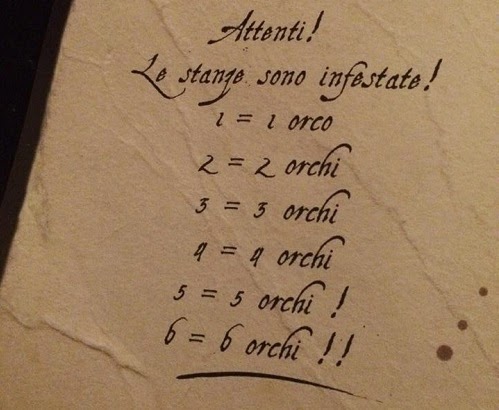 Attenti!
Le stanze sono infestate!
1 = 1 orco
2 = 2 orchi
3 = 3 orchi
4 = 4 orchi
5 = 5 orchi !
6 = 6 orchi !!